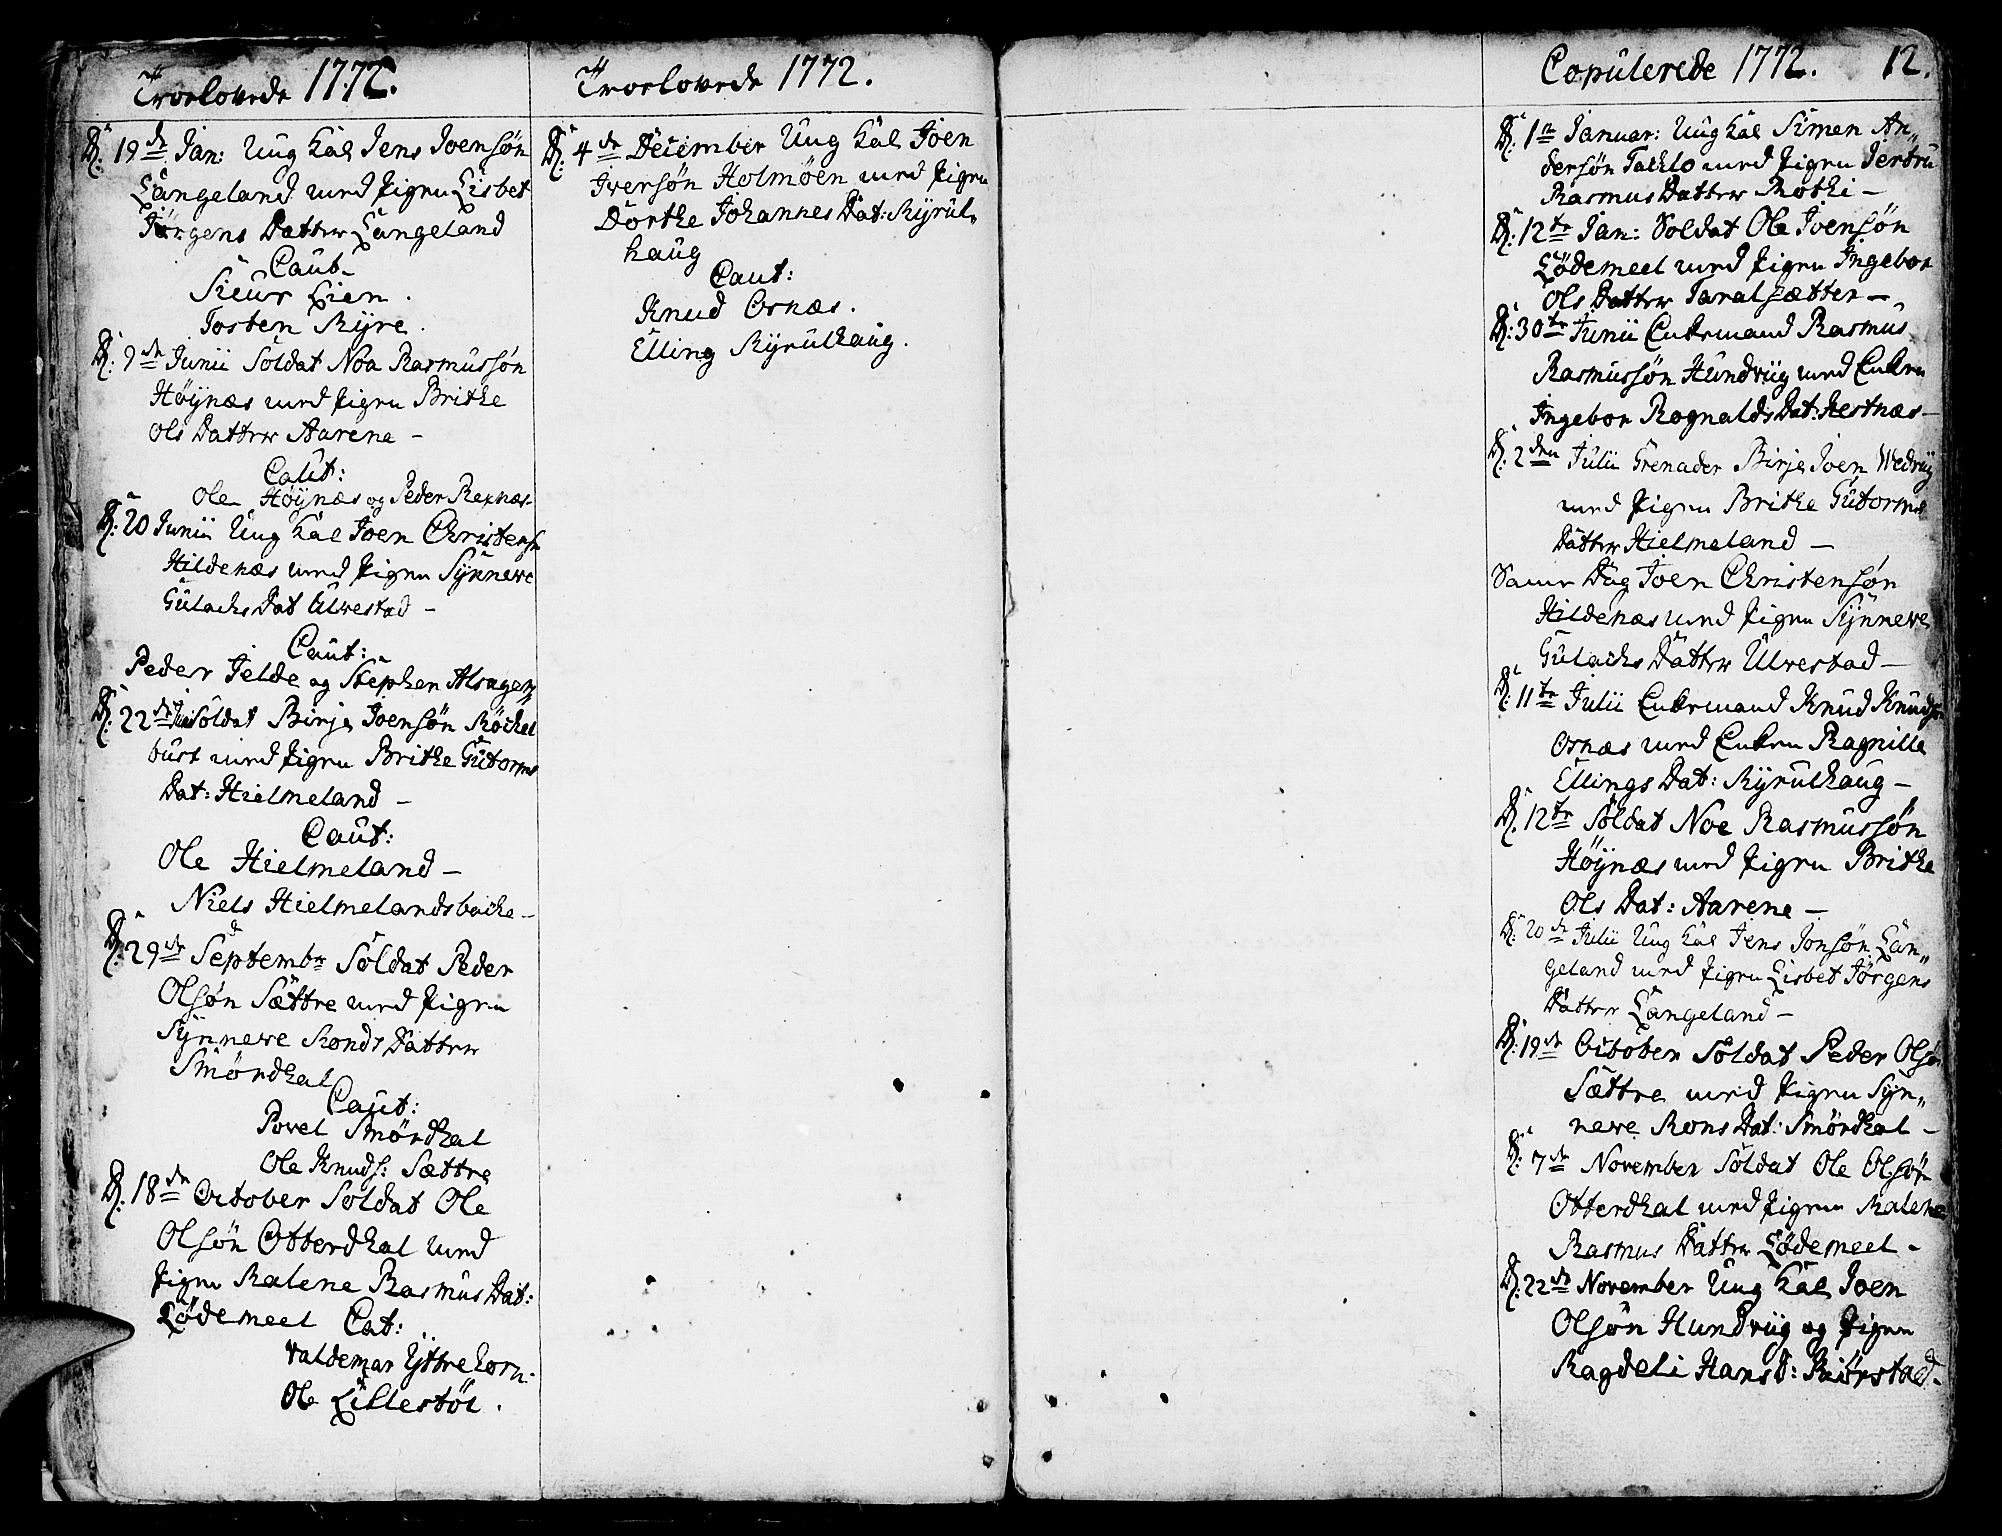 Trorlovede 1772.
D: 19de Jan: Ung Kal Jens Joensøn
Langeland med Pigen Lisbet
Jørgens Datter Langeland
Caut.
Sieur Lien.
Tosten Myre.
D: 9de Junii Soldat Noa Rasmussøn
Høÿnæs med Pigen Brithe
Ols Datter Aarene –
Caut:
Ole Høÿnæs og Peder Rexnæs
D: 20 Junii Ung Kal Joen Christens.
Hildenæs med Pigen Sÿnneve
Gulachs Dat Ulvestad –
Caut:
Peder Jelde og Stephen Alsagen
D: 22de Jun Soldat Birje Joensøn Møckel
bust med Pigen Brithe Gutorms
Dat: Hielmeland –
Caut:
Ole Hielmeland –
Niels Hielmelandsbacke –
D: 29de Septembr Soldat Peder
Olsøn Sættre med Pigen
Sÿnneve Monds Datter
Smørdhal
Caut:
Povel Smørdhal
Ole Knuds: Sættre
D: 18de October Soldat Ole
Olsøn Otterdhal med
Pigen Malene Rasmus Dat:
Lødemeel Cat:
Valdemar Yttrehorn:
Ole Lillestøl.
Trorlovede 1772.
D: 4de December Ung Kal Joen
Iversøn Holmøen med Pigen
Dorthe Johannes Dat: Myrul=
haug
Caut:
Knud Osnæs.
Elling Myrulhaug.
Copulerede 1772. 12.
D: 1te Januar: Ung Kal Simen An=
dersøn Tachlo med Pigen Jertru
Rasmus Datter Mothi –
D: 12te Jan: Soldat Ole Joensøn
Lødemeel med Pigen Ingebor
Ols Datter Taralsætter –
D: 30te Junii Enkemand Rasmus
Rasmussøn Hundviig med Enken
Ingebor Rognalds Dat: Hestnæs –
D: 2den Julii Grenader Birje Joen Wedviig
med Pigen Brithe Gutorms
Datter Hielmeland –
Same Dag Joen Christensøn
Hildenæs med Pigen Sÿnneve
Gulachs Datter Ulvestad –
D: 11te Julii Enkemand Knud Knuds.
Osnæs med Enken Ragnille
Ellings Dat: Myrulhaug –
D: 12te Soldat Noe Rasmussøn
Høÿnæs med Pigen Brithe
Ols Dat: Aarene –
D: 20de Julii Ung Kal Jens Jonsøn Lan=
geland med Pigen Lisbet Jørgens
Datter Langeland –
D: 19de October Soldat Peder Olsøn
Sættre med Pigen Sÿn=
neve Mons Dat: Smørdhal –
D: 7de November Soldat Ole Olsøn
Otterdhal med Pigen Malene
Rasmus Datter Lødemeel –
D: 22de November Ung Kal Joen
Olsøn Hundviig og Pigen
Magdeli Hans D: Miørstad –